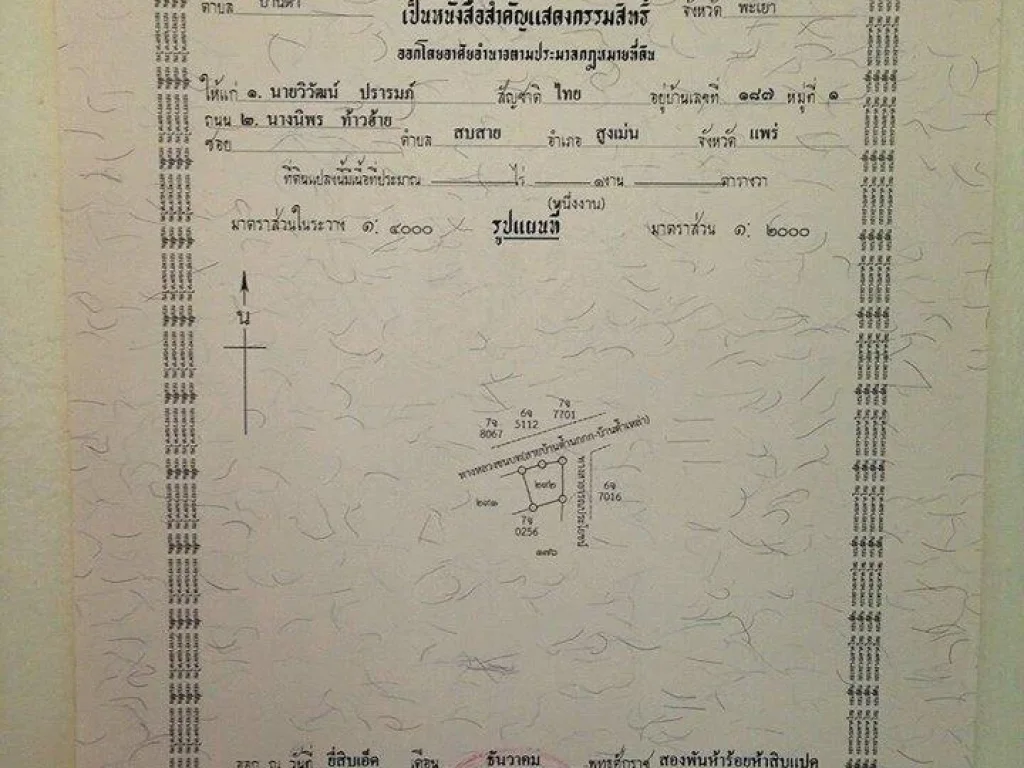 ตำบล บ้านต๊ำ จังหวัด พะเยา
เป็นหนังสือสำคัญแสดงกรรมสิทธิ์
ออกโดยอาศัยอำนาจตามประมวลกฎหมายที่ดิน
ให้แก่ ๑. นายวิวัฒน์ ปรารมภ์ สัญชาติ ไทย อยู่บ้านเลขที่ ๑๘๗ หมู่ที่ ๑
ถนน ๒. นางนิพร ท้าวฮ้าย
ซอย ตำบล สบสาย อำเภอ สูงเม่น จังหวัด แพร่
ที่ดินแปลงนี้มีเนื้อที่ประมาณ ไร่ ๑งาน ตารางวา
(หนึ่งงาน)
มาตราส่วนในระวาง ๑: ๔๐๐๐ รูปแผนที่ มาตราส่วน ๑: ๒๐๐๐
น
7จ 7701
6จ 5112
7จ 8067
ทางหลวงชนบท(สายบ้านต๊ำนกกก-บ้านต๊ำเหล่า)
๒๙๑
๒๙๒
ทางสาธารณประโยชน์
6จ 7016
7จ 0256
๑๗๖
ออก ณ วันที่ ยี่สิบเอ็ด เดือน ธันวาคม พุทธศักราช สองพันห้าร้อยห้าสิบแปด